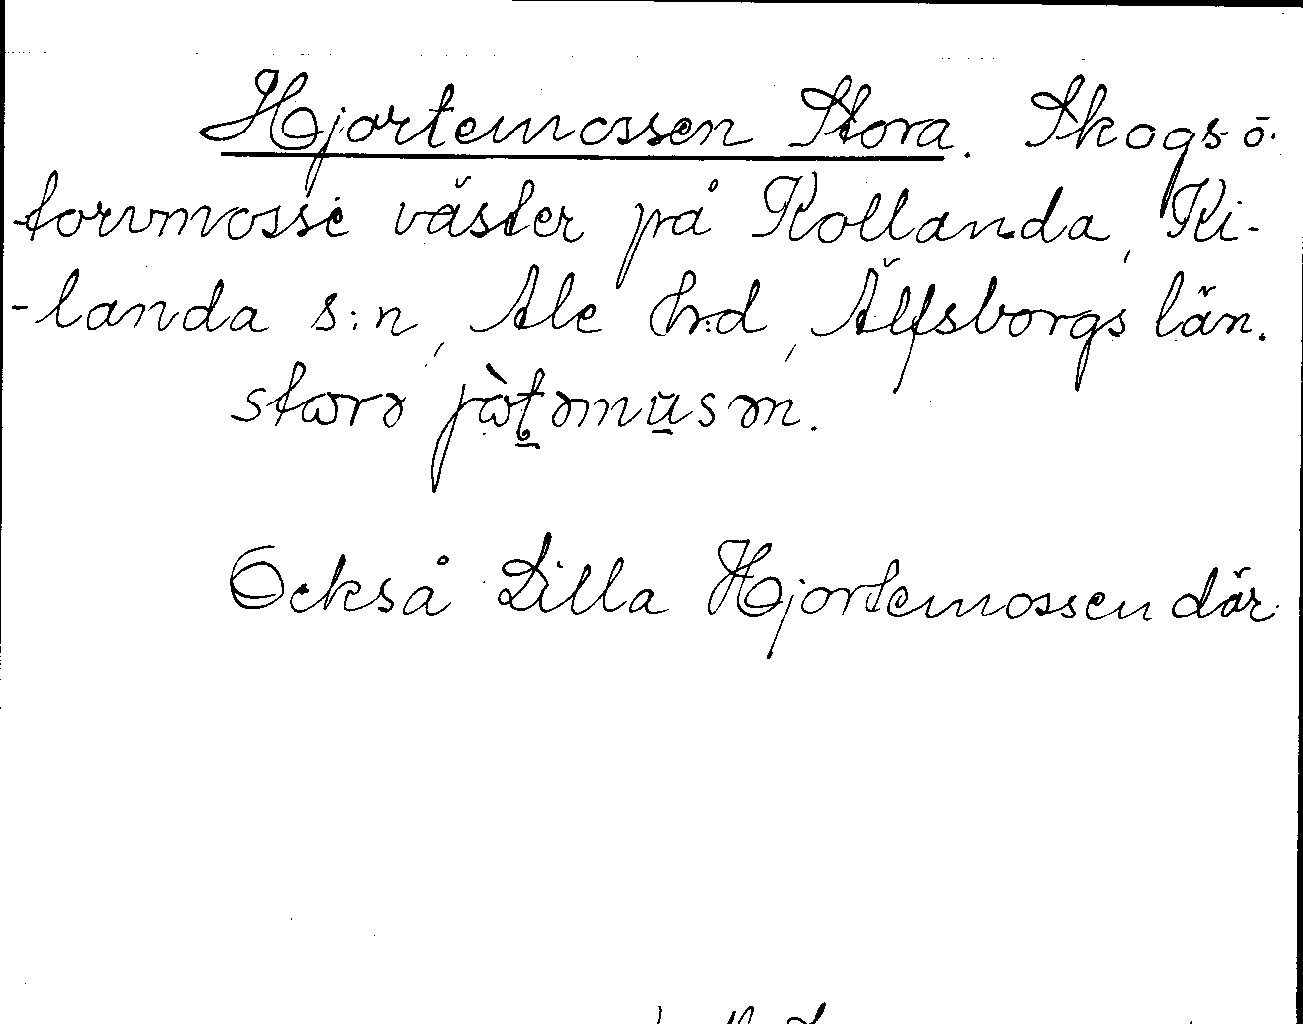 Hjortemossen Stora. Skogs- o.
torvmosse väster på Kollanda, Ki-
-landa s:n, Ale h:d, Älfsborgs län.
starə jòt̠əmu̠sən.
Också Lilla Hjortemossen där